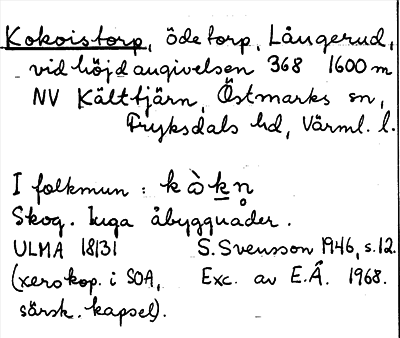 Kokoistorp, ödetorp, Långerud,
vid höjdangivelsen 368 1600 m
NV Kälttjärn, Östmarks sn,
Fryksdals hd, Värml. l.
I folkmun : k å̀ k n̥
Skog. Inga åbyggnader.
ULMA 18131 S. Svensson 1946, s. 12.
(xerokop. i SOA, Exc. av E. Å. 1968.
särsk. kapsel).